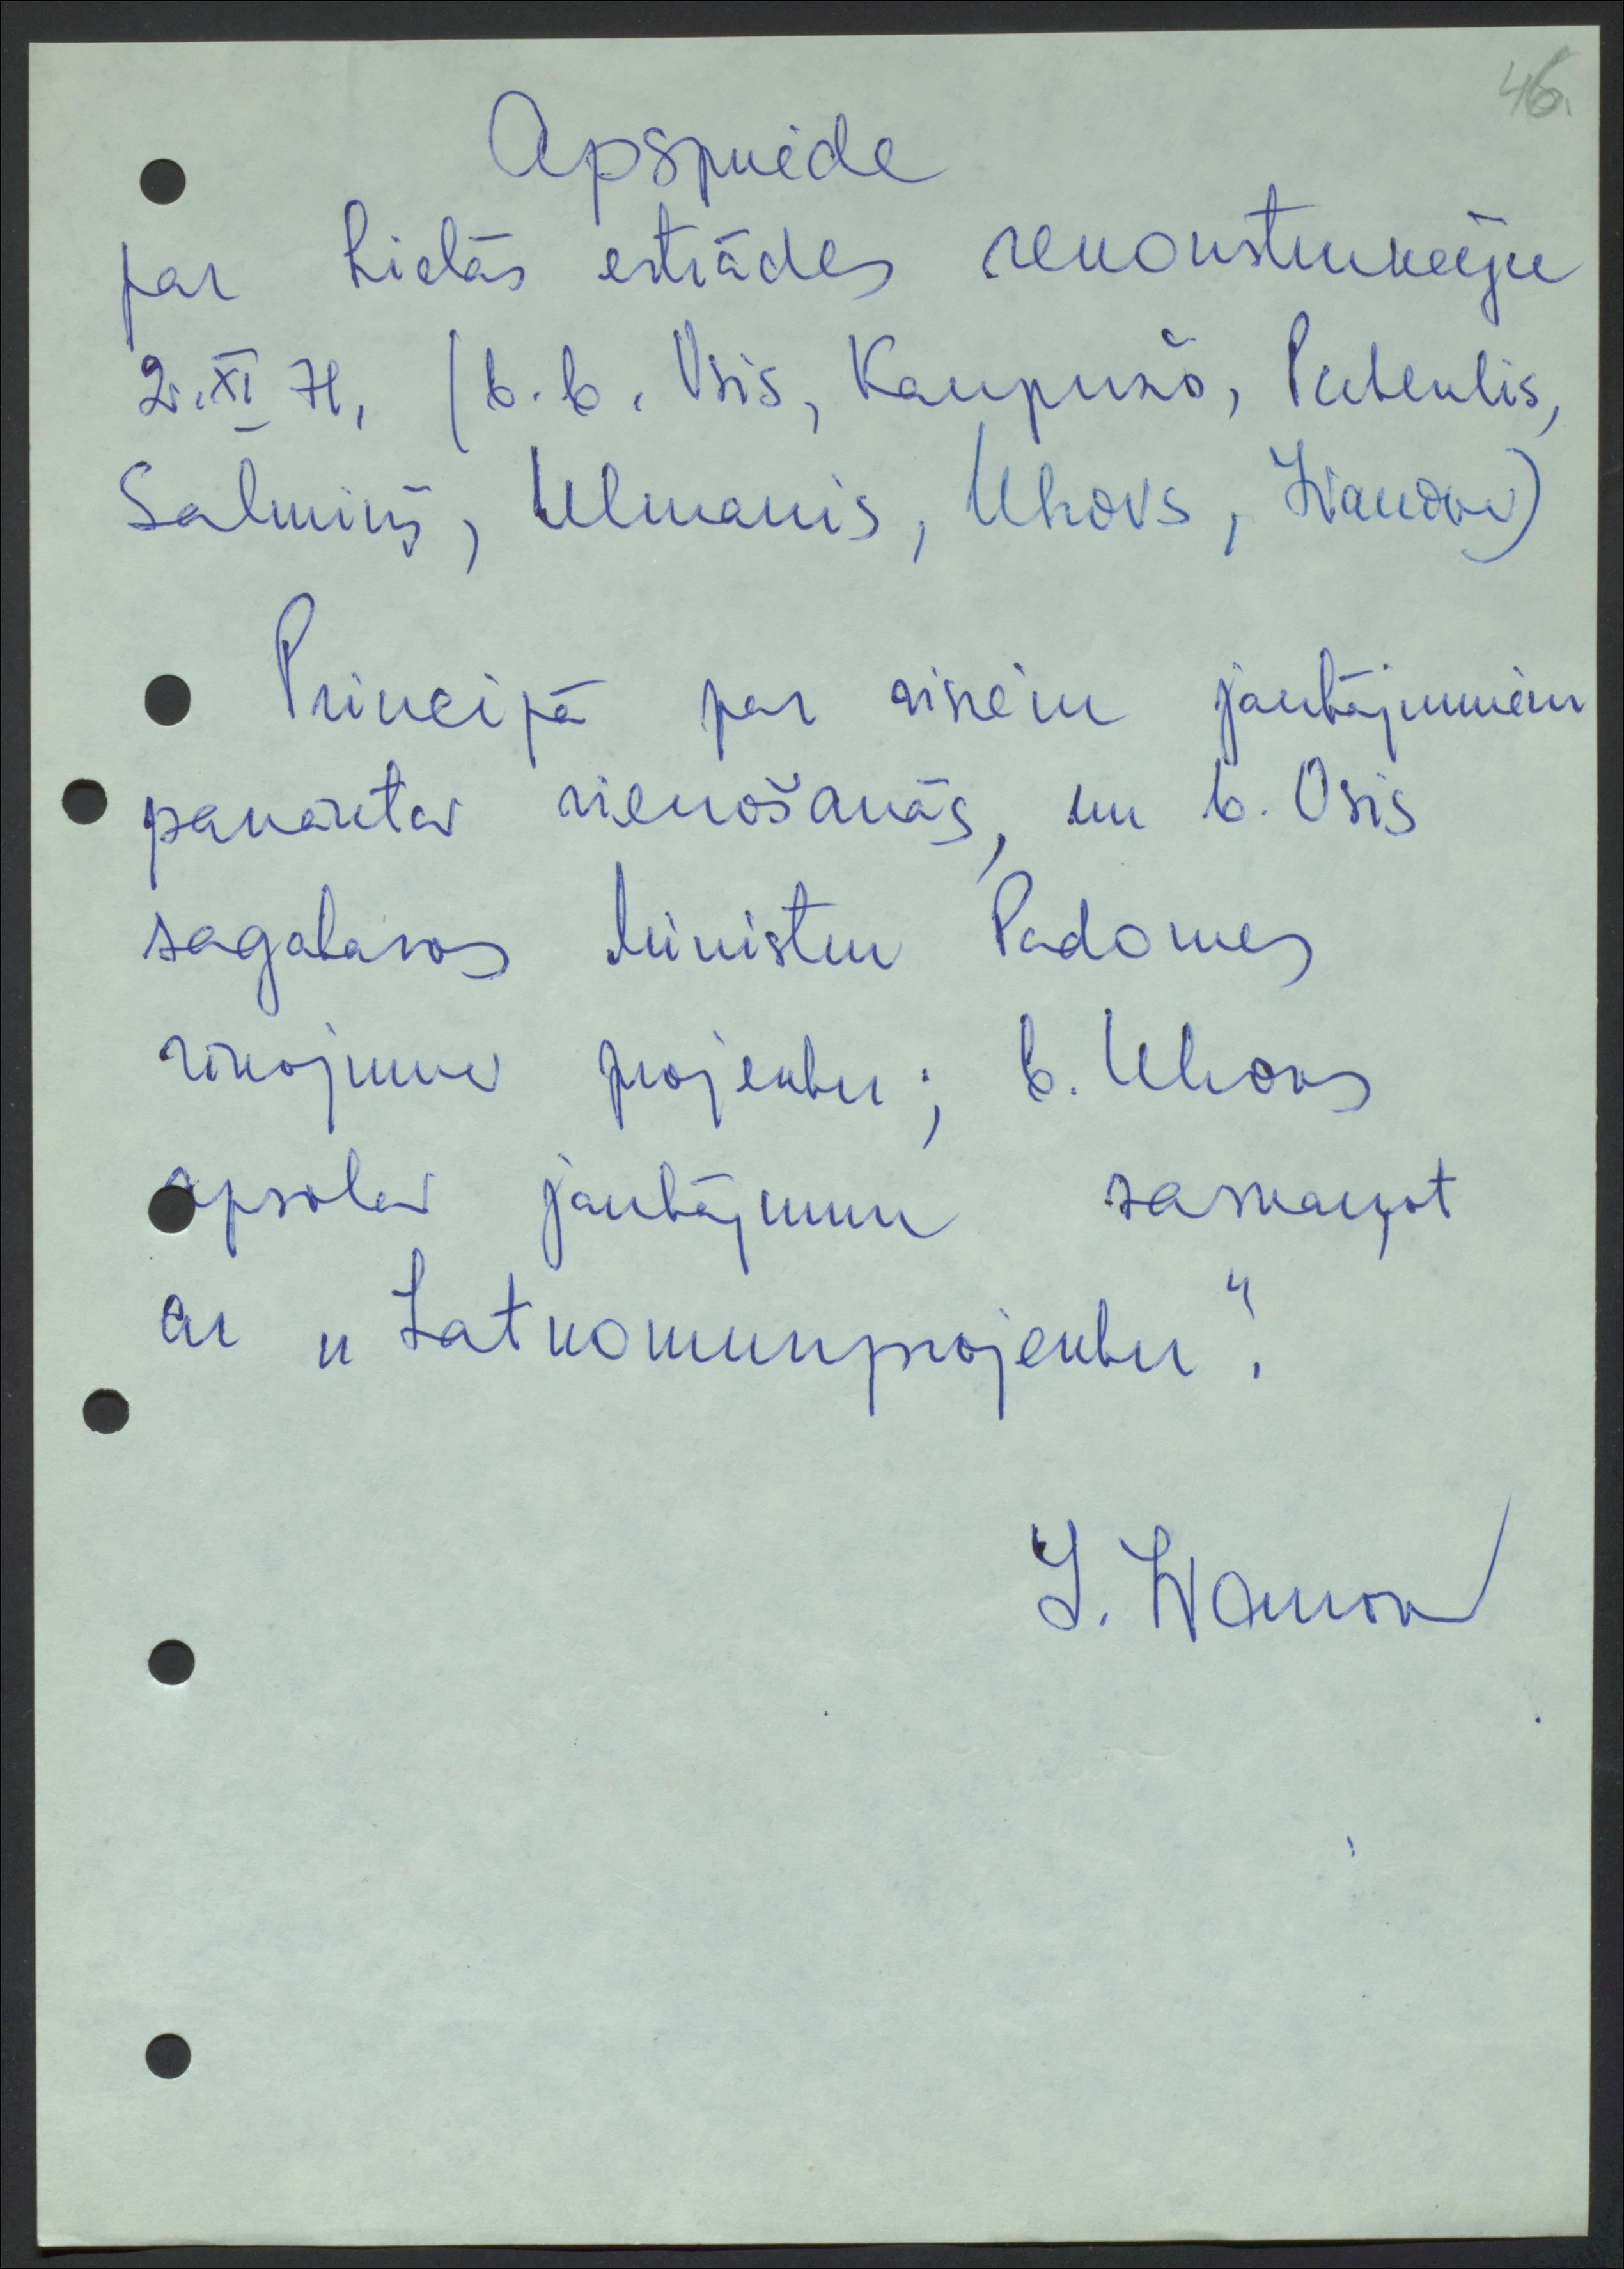 46.
Apspriede
par Lielās estrādes rekonstrukciju
2.XI 71, (b.b. Osis, Kaupužs,
Salmiņš, Ulmanis, Uhovs, Ivanova)
Principā par visiem jautājumiem
panākta vienošanās, un b. Osis
sagatavos Ministru Padomes
rīkojuma projektu; b. Uhovs
apsola jautājumu saskaņot
ar „Latkomunprojektu".